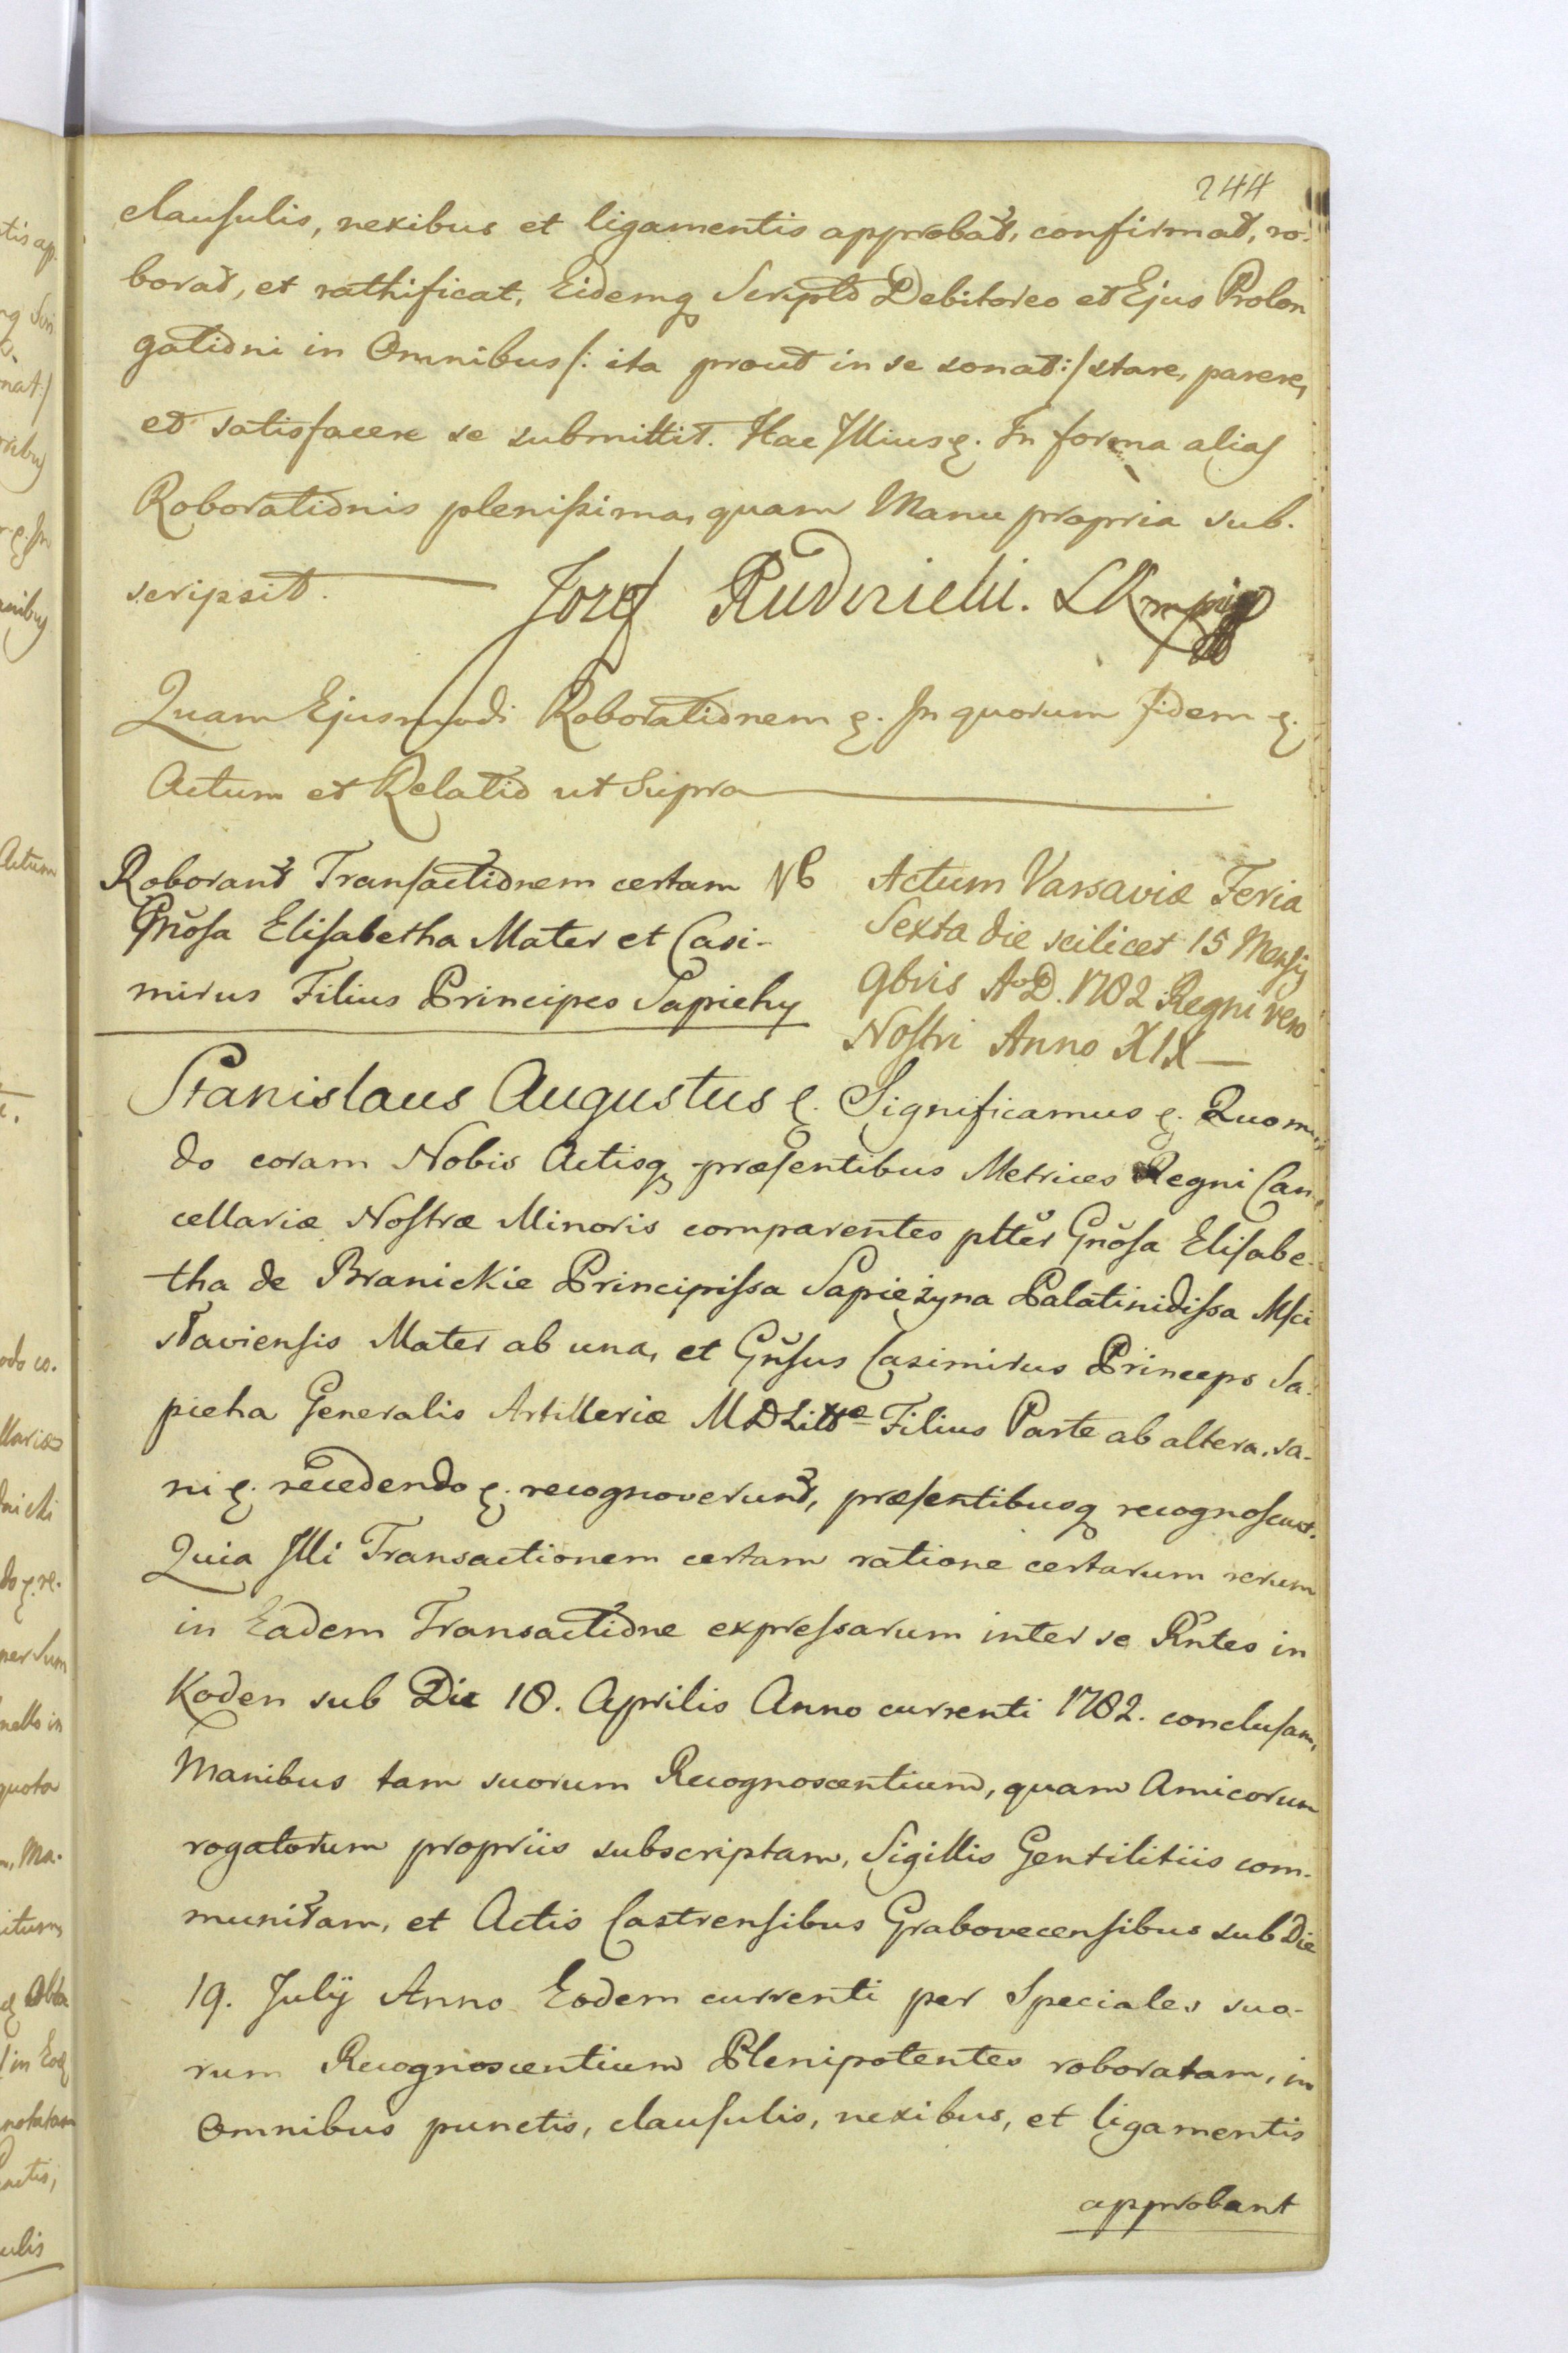 244
clausulis, nexibus et ligamentis approbat, confirmat, ro-
borat, et rathificat, Eidemq Scripto Debitoreo et Ejus Prolon
gationi in Omnibus /: ita prout in se sonat :/ stare, parere,
et satisfacere se submittit. Hac Illiusq. In forma alias
Roborationis plenissima, quam Manu propria sub-
scripsit. Jozef Rudnicki. LK mpp
Quam Ejusmodi Roborationem &. In quorum fidem &.
Actum et Relatio ut Supra
Roborant Transactionem certam NB
Gnosa Elisabetha Mater et Casi-
mirus Filius Principes Sapiehy
Actum Varsaviæ Feria
Sexta die scilicet 15 Mensis
9bris A.D. 1782 Regni vero
Nostri Anno XIX
Stanislaus Augustus &. Significamus &. Quomo
do coram Nobis Actisq præsentibus Metrices Regni Can-
cellariæ Nostræ Minoris comparentes pltter Gnosa Elisabe-
tha de Branickie Principissa Sapieżyna Palatinidissa Msci
slaviensis Mater ab una, et Gnsus Casimirus Princeps Sa-
pieha Generalis Artilleriæ MDLittæ Filius Parte ab altera, sa-
ni &. recedendo &. recognoverunt, præsentibusq recognoscunt.
Quia Illi Transactionem certam ratione certarum rerum
in Eadem Transactione expressarum inter se Rntes in
Koden sub Die 18. Aprilis Anno currenti 1782. conclusam,
Manibus tam suorum Recognoscentium, quam Amicorum
rogatorum propriis subscriptam, Sigillis Gentilitiis com-
munitam, et Actis Castrensibus Grabovecensibus sub Die
19. Julij Anno Eodem currenti per Speciales suo-
rum Recognoscentium Plenipotentes roboratam, in
Omnibus punctis, clausulis, nexibus, et ligamentis
approbant